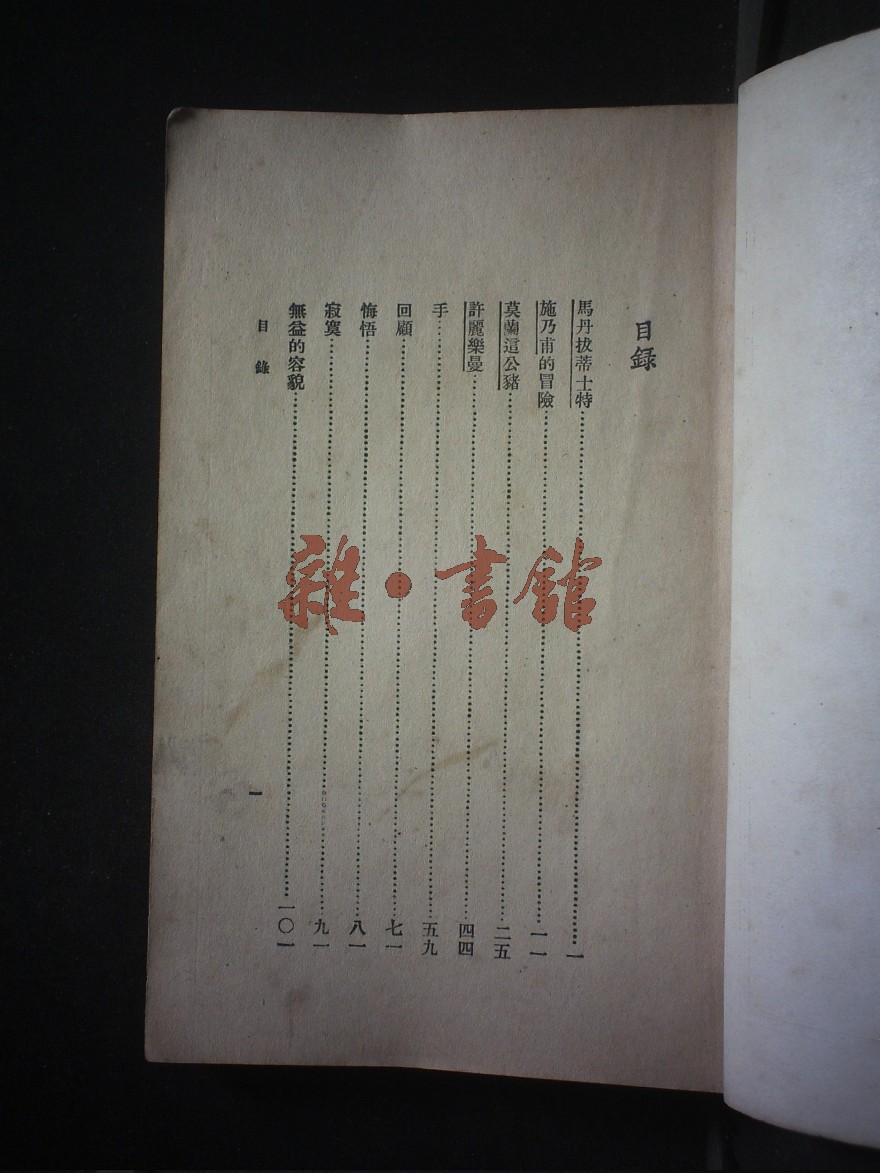 目錄
馬丹拔蒂士特……一
施乃甫的冒險……一一
莫蘭這公豬……二五
許麗樂曼……四四
手……五九
回顧……七一
悔悟……八一
寂寞……九一
無益的容貌……一〇一
目錄
一
雜·書館